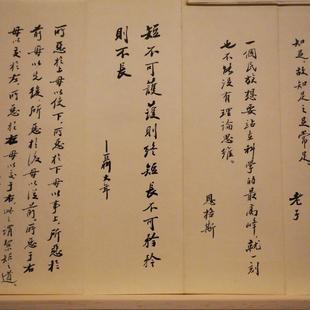 知足,故知足之足常足。
老子
一個民族想要站立科學的最高峰,就一刻
也不能沒有理論思維。
恩格斯
短不可護護則終短長不可矜矜
則不長
—聶大年
所惡於上毋以使下,所惡於下毋以事上,所惡於
前毋以先後,所惡於後毋以從前,所惡于右
毋以交於左,所惡於左毋以交于右,此之謂絜矩之道。